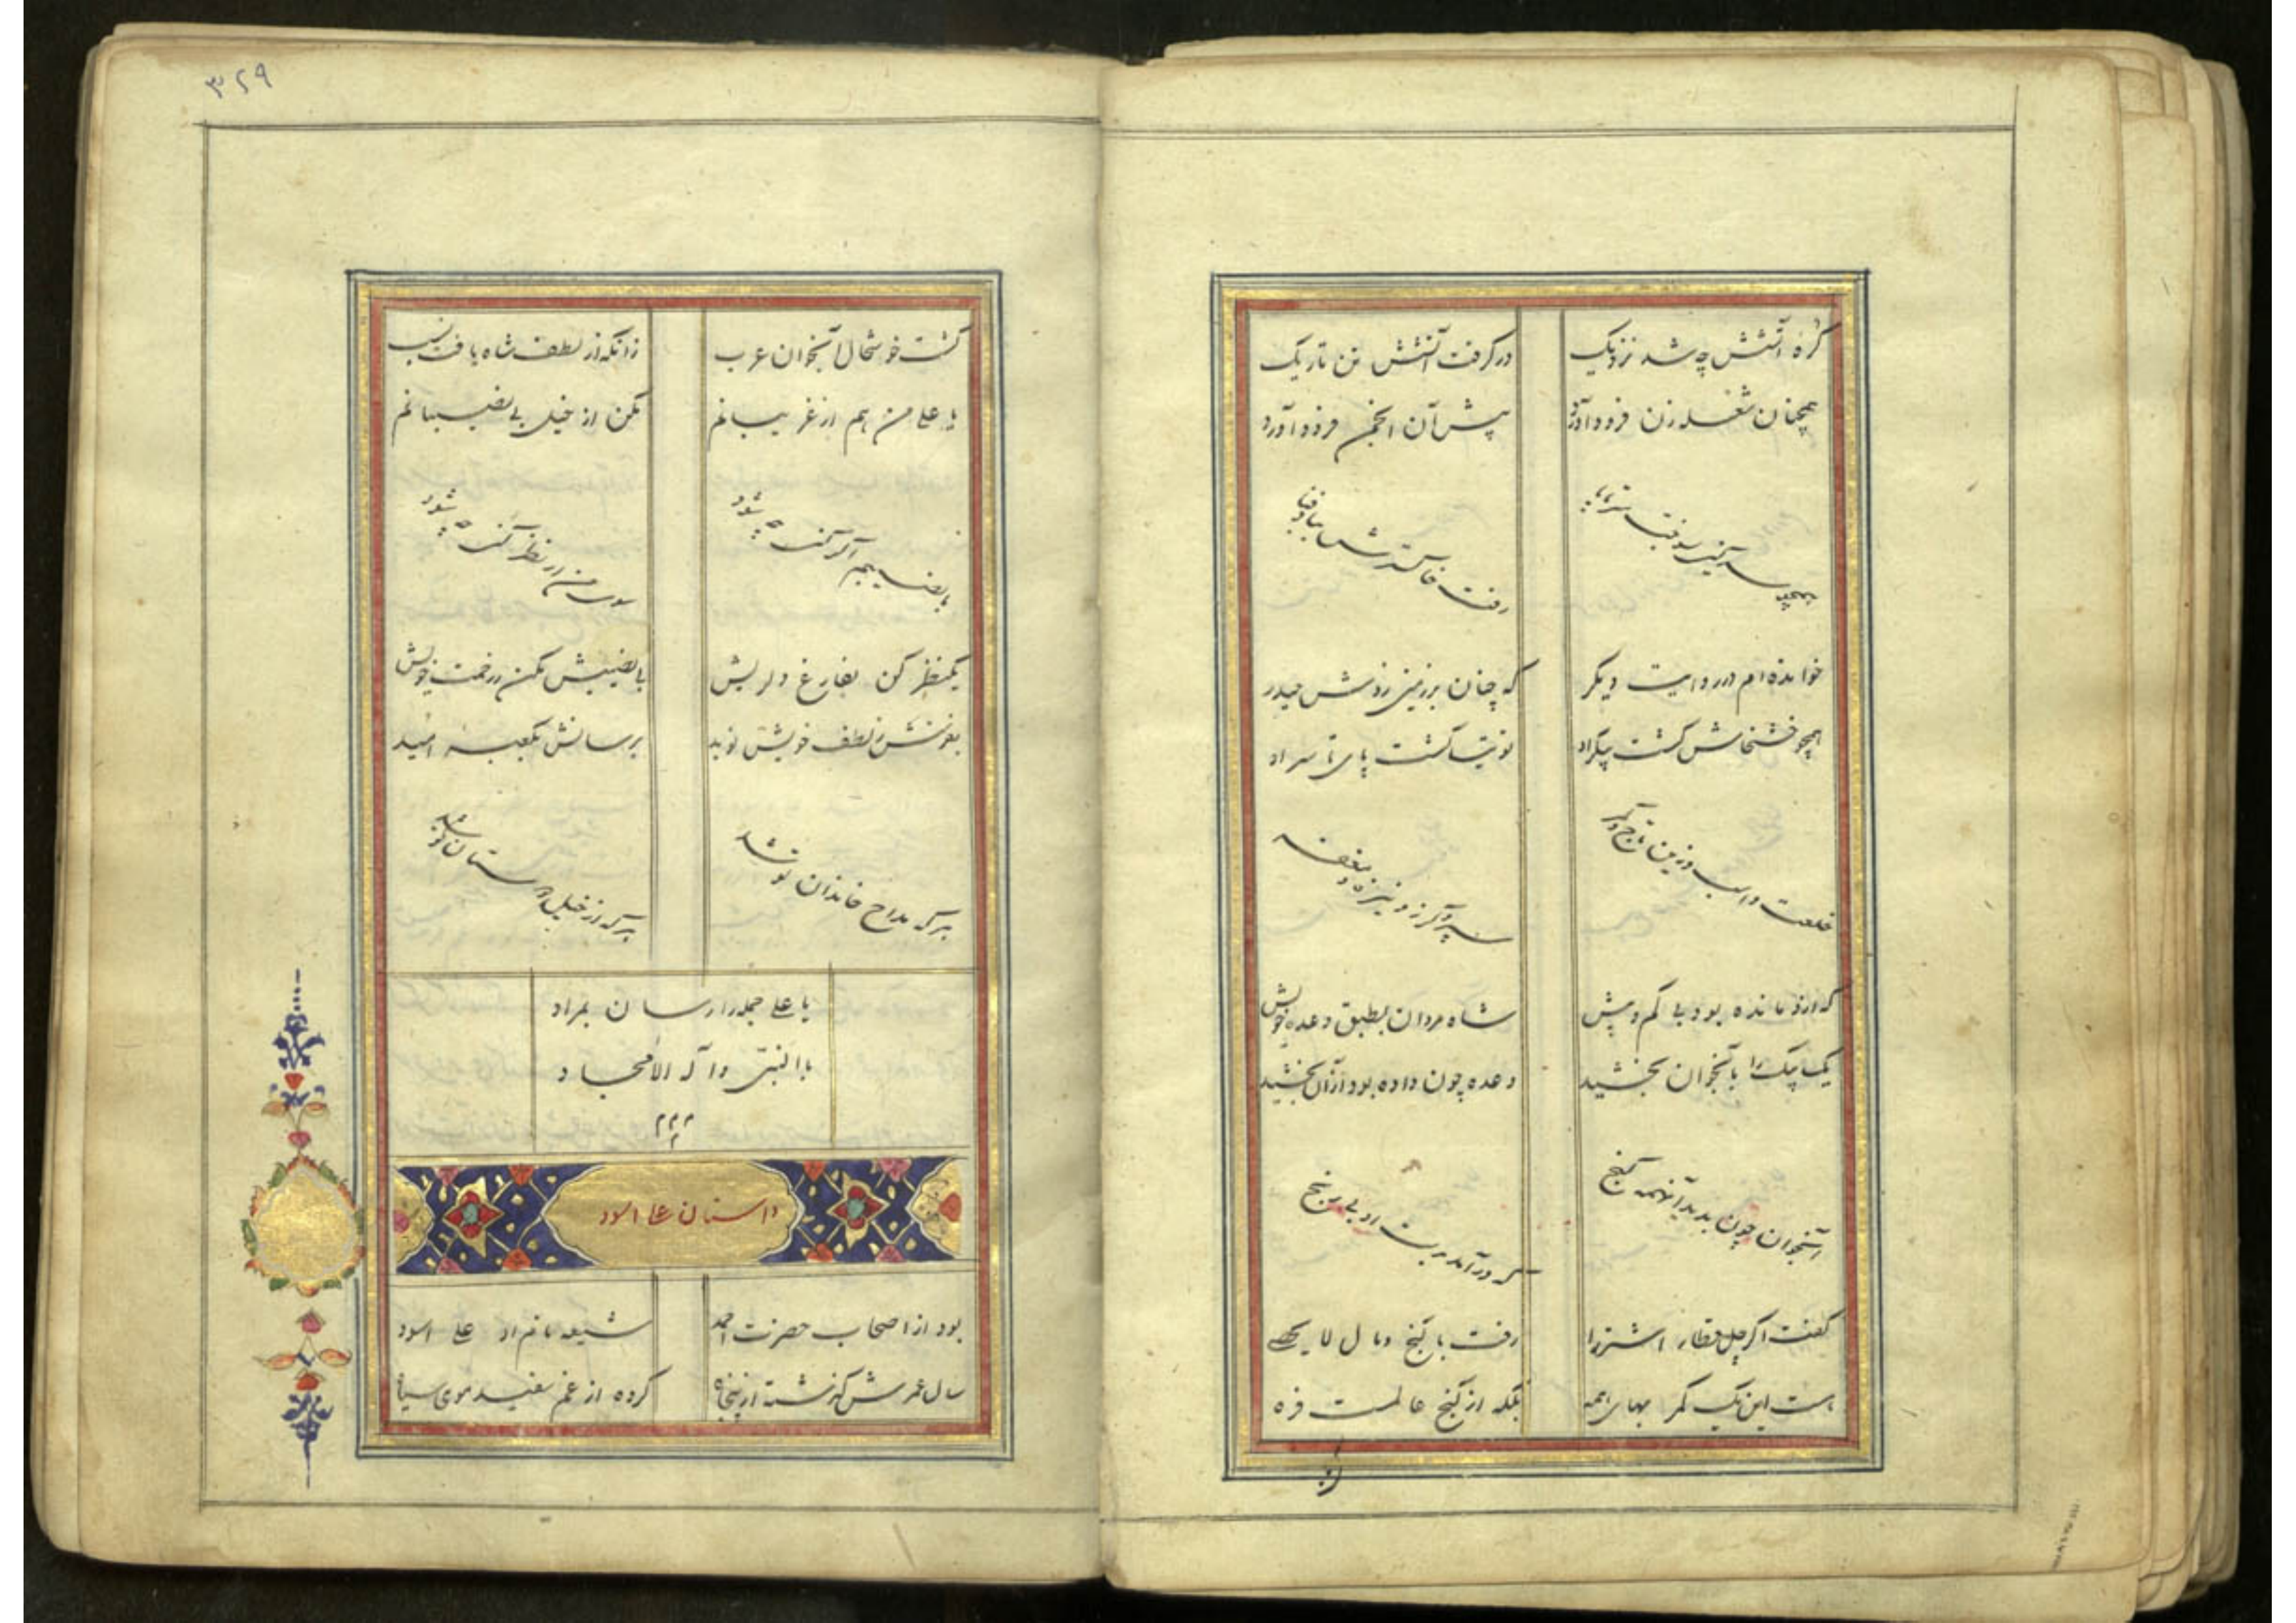 کره آتشش چه شد نزدیک
درگرفت آتشش تن تاریک
همچنان شعله زن فرود آورد
پیش آن انجمن فرود آورد
رفت خاکسترش بباد فنا
خوانده ام در روایت دیگر
که چنان بر زمین زدش حیدر
همچو خشخاش گشت پیکر او
توتیا گشت پای تا سر او
خلعت و اسب و زین و تاج و کمر
سپر و گرز و نیزه و مغفر
که ازو مانده بود بی کم و بیش
شاه مردان بطبق وعده خویش
یک بیک را بآنجوان بخشید
وعده چون داده بود ازآن بخشید
آنجوان چون بدید آنهمه گنج
که درآمد بدست او بی رنج
گفت اگر چل قطار اشتر را
رفت با گنج و مال لا یحصی
هست این یک کمر بهای همه
بلکه از گنج عالمست فره
۳۲۹
گشت خوشحال آنجوان عرب
زانکه از لطف شاه یافت نسب
یا علی من هم از غریبانم
مکن از خیل بی نصیبانم
با نصیبم اگر کنی چه شود
سوی من ار نظر کنی چه شود
یکنظر کن بفارغ دلریش
بی نصیبش مکن ز رحمت خویش
بفرستش ز لطف خویش نوید
برسانش بکعبه امید
هر که مداح خاندان تو شد
هر که از خیل دوستان تو شد
یا علی جمله را رسان بمراد
بالنبی و آله الامجاد
۲۲۲
داستان علی اسود
بود از اصحاب حضرت احمد
شیعه نام او علی اسود
سال عمرش گذشته از پنجاه
کرده از غم سفید موی سیاه